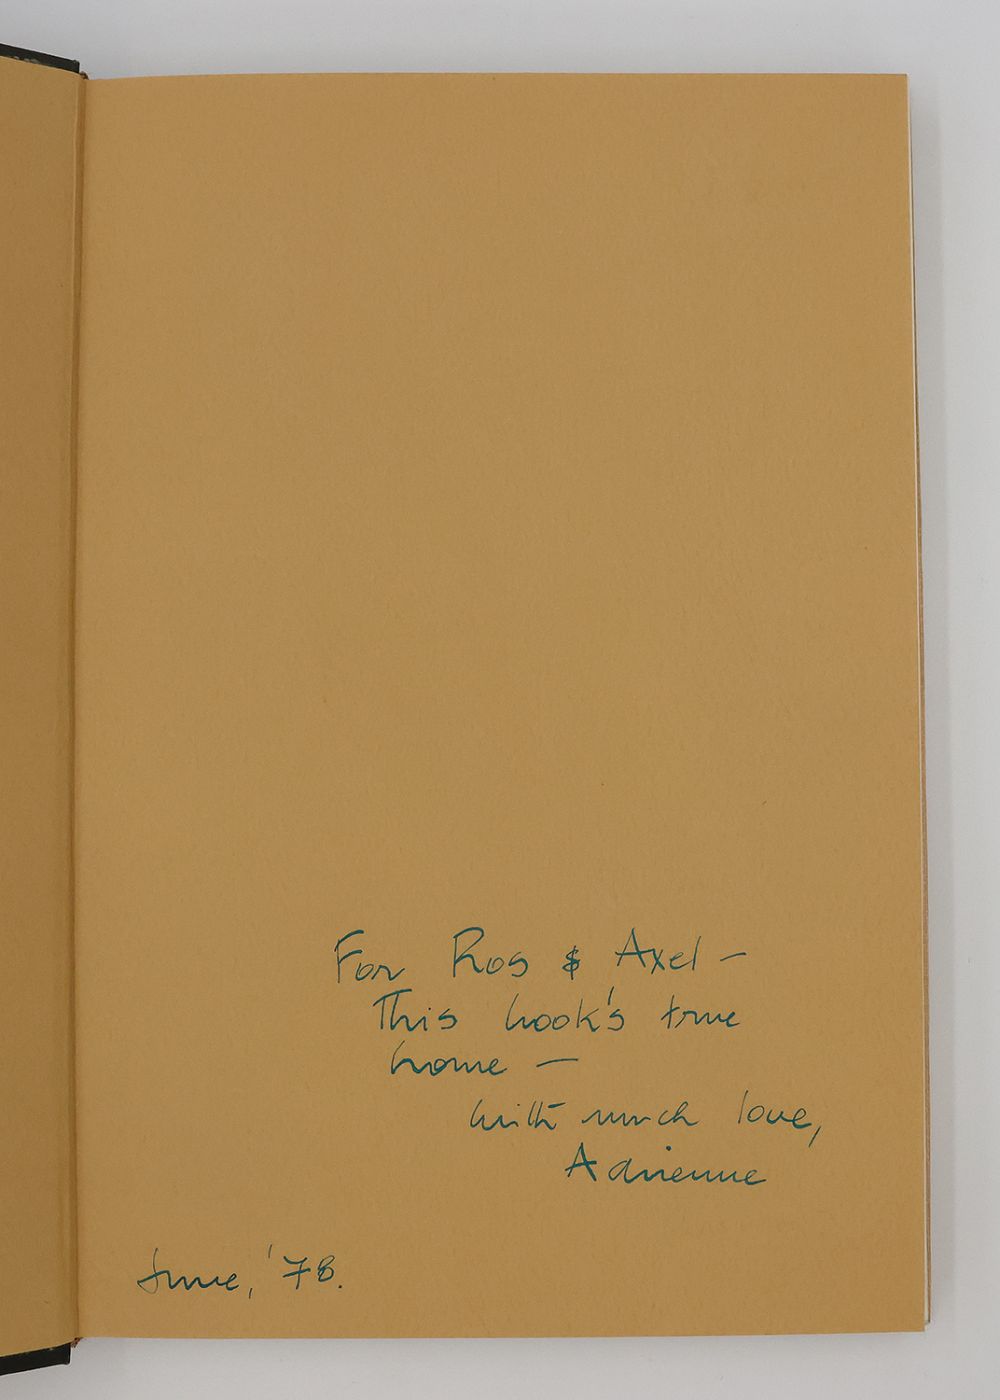 For Ros & Axel –
This book's true
home –
with much love,
Adrienne
June, '78.